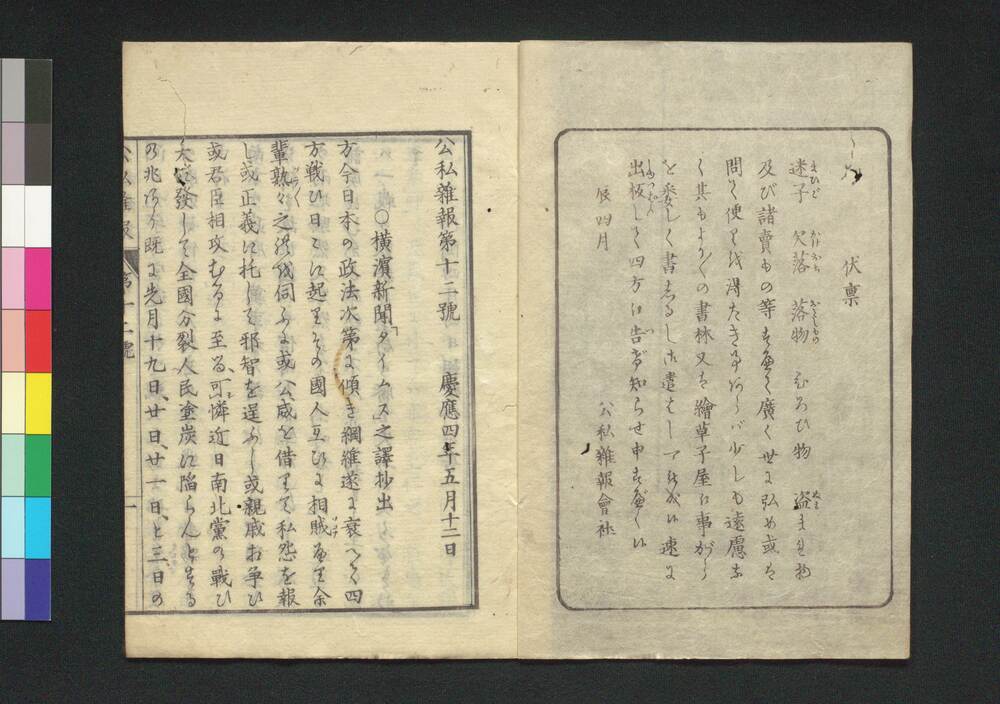 伏稟
迷子 欠落 落物 ひろひ物 盗まれ物
及び諸賣もの等すべて廣く世に弘め或は
問く便りを得たき事あらバ少しも遠慮な
く其もよりの書林又は繪草子屋に事がら
を委しく書しるし御遣はし下され候はゞ速に
出板して四方に告げ知らせ申すべく候
辰四月
公私雜報會社
公私雜報第十二號 慶應四年五月十二日
○横濱新聞「タイムス」之譯抄出
方今日本の政法次第に傾き綱維遂に衰へて四
方戰ひ日々に起りその國人互ひに相賊なへり余
輩熟々之を伺ふに或公威を借りて私怨を報
し或正義に托して邪智を逞ふし或親戚お争ひ
或君臣相攻むるに至る、可憐近日南北黨の戰ひ
大に發して全國分裂人民塗炭に陥らんとする
の兆あり既に先月十九日、廿日、廿一日、と三日の
公私雜報 第十二號 一